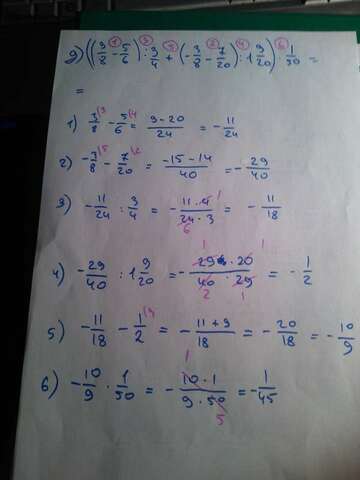 9) ((3/8 - 5/6) : 3/4 + (-3/8 - 7/20) : 1 9/20) · 1/50 =
=
1) 3/8 - 5/6 = 9-20/24 = -11/24
2) -3/8 - 7/20 = -15-14/40 = -29/40
3) -11/24 : 3/4 = -11·4/24·3 = -11/18
4) -29/40 : 1 9/20 = -29·20/40·29 = -1/2
5) -11/18 - 1/2 = -11+9/18 = -20/18 = -10/9
6) -10/9 · 1/50 = -10·1/9·50 = -1/45